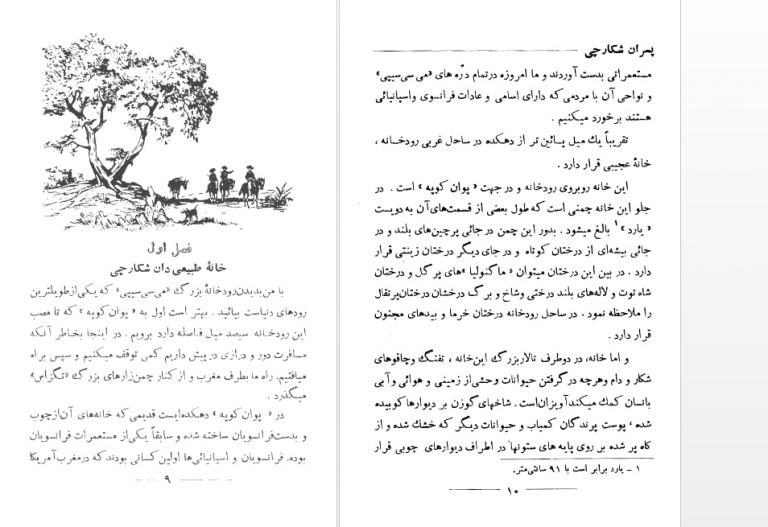 فصل اول
خانهٔ طبیعی دان شکارچی
با من بدیدن رودخانهٔ بزرگ «می سی سیپی» که یکی از طویلترین
رودهای دنیاست بیائید. بهتر است اول به «پوان کوپه» که تا مصب
این رودخانه سیصد میل فاصله دارد برویم. در اینجا بخاطر آنکه
مسافرت دور و درازی در پیش داریم کمی توقف میکنیم و سپس براه
میافتیم. راه ما بطرف مغرب و از کنار چمن‌زارهای بزرگ «تگزاس»
میگذرد.
در «پوان کوپه» دهکده‌ایست قدیمی که خانه‌های آن از چوب
و بدست فرانسویان ساخته شده و سابقاً یکی از مستعمرات فرانسویان
بوده. فرانسویان و اسپانیائی‌ها اولین کسانی بودند که در مغرب آمریکا
۹
پسران شکارچی
مستعمراتی بدست آوردند و ما امروزه در تمام درّه های «می سی سیپی»
و نواحی آن با مردمی که دارای اسامی و عادات فرانسوی واسپانیائی
هستند برخورد میکنیم.
تقریباً یك میل پائین تر از دهکده در ساحل غربی رودخانه،
خانهٔ عجیبی قرار دارد.
این خانه روبروی رودخانه و در جهت «پوان کوپه» است. در
جلو این خانه چمنی است که طول بعضی از قسمت‌های آن به دویست
«یارد»۱ بالغ میشود. بدور این چمن در جائی پرچین‌های بلند و در
جائی بیشه‌ای از درختان کوتاه و در جای دیگر درختان زینتی قرار
دارد. در بین این درختان میتوان «ماگنولیا»های پر گل و درختان
شاه توت و لاله‌های بلند درختی وشاخ و برگ درخشان درختان پرتقال
را ملاحظه نمود. در ساحل رودخانه درختان خرما و بیدهای مجنون
قرار دارد.
و اما خانه، در دو طرف تالار بزرگ این خانه، تفنگ وچاقوهای
شکار و دام وهرچه در گرفتن حیوانات وحشی از زمینی و هوائی و آبی
بانسان کمك میکند آویزان است. شاخهای گوزن بر دیوارها کوبیده
شده، پوست پرندگان کمیاب و حیوانات دیگر که خشك شده و از
کاه پر شده بر روی پایه های ستونها در اطراف دیوارهای چوبی قرار
۱ - یارد برابر است با ۹۱ سانتی‌متر.
۱۰